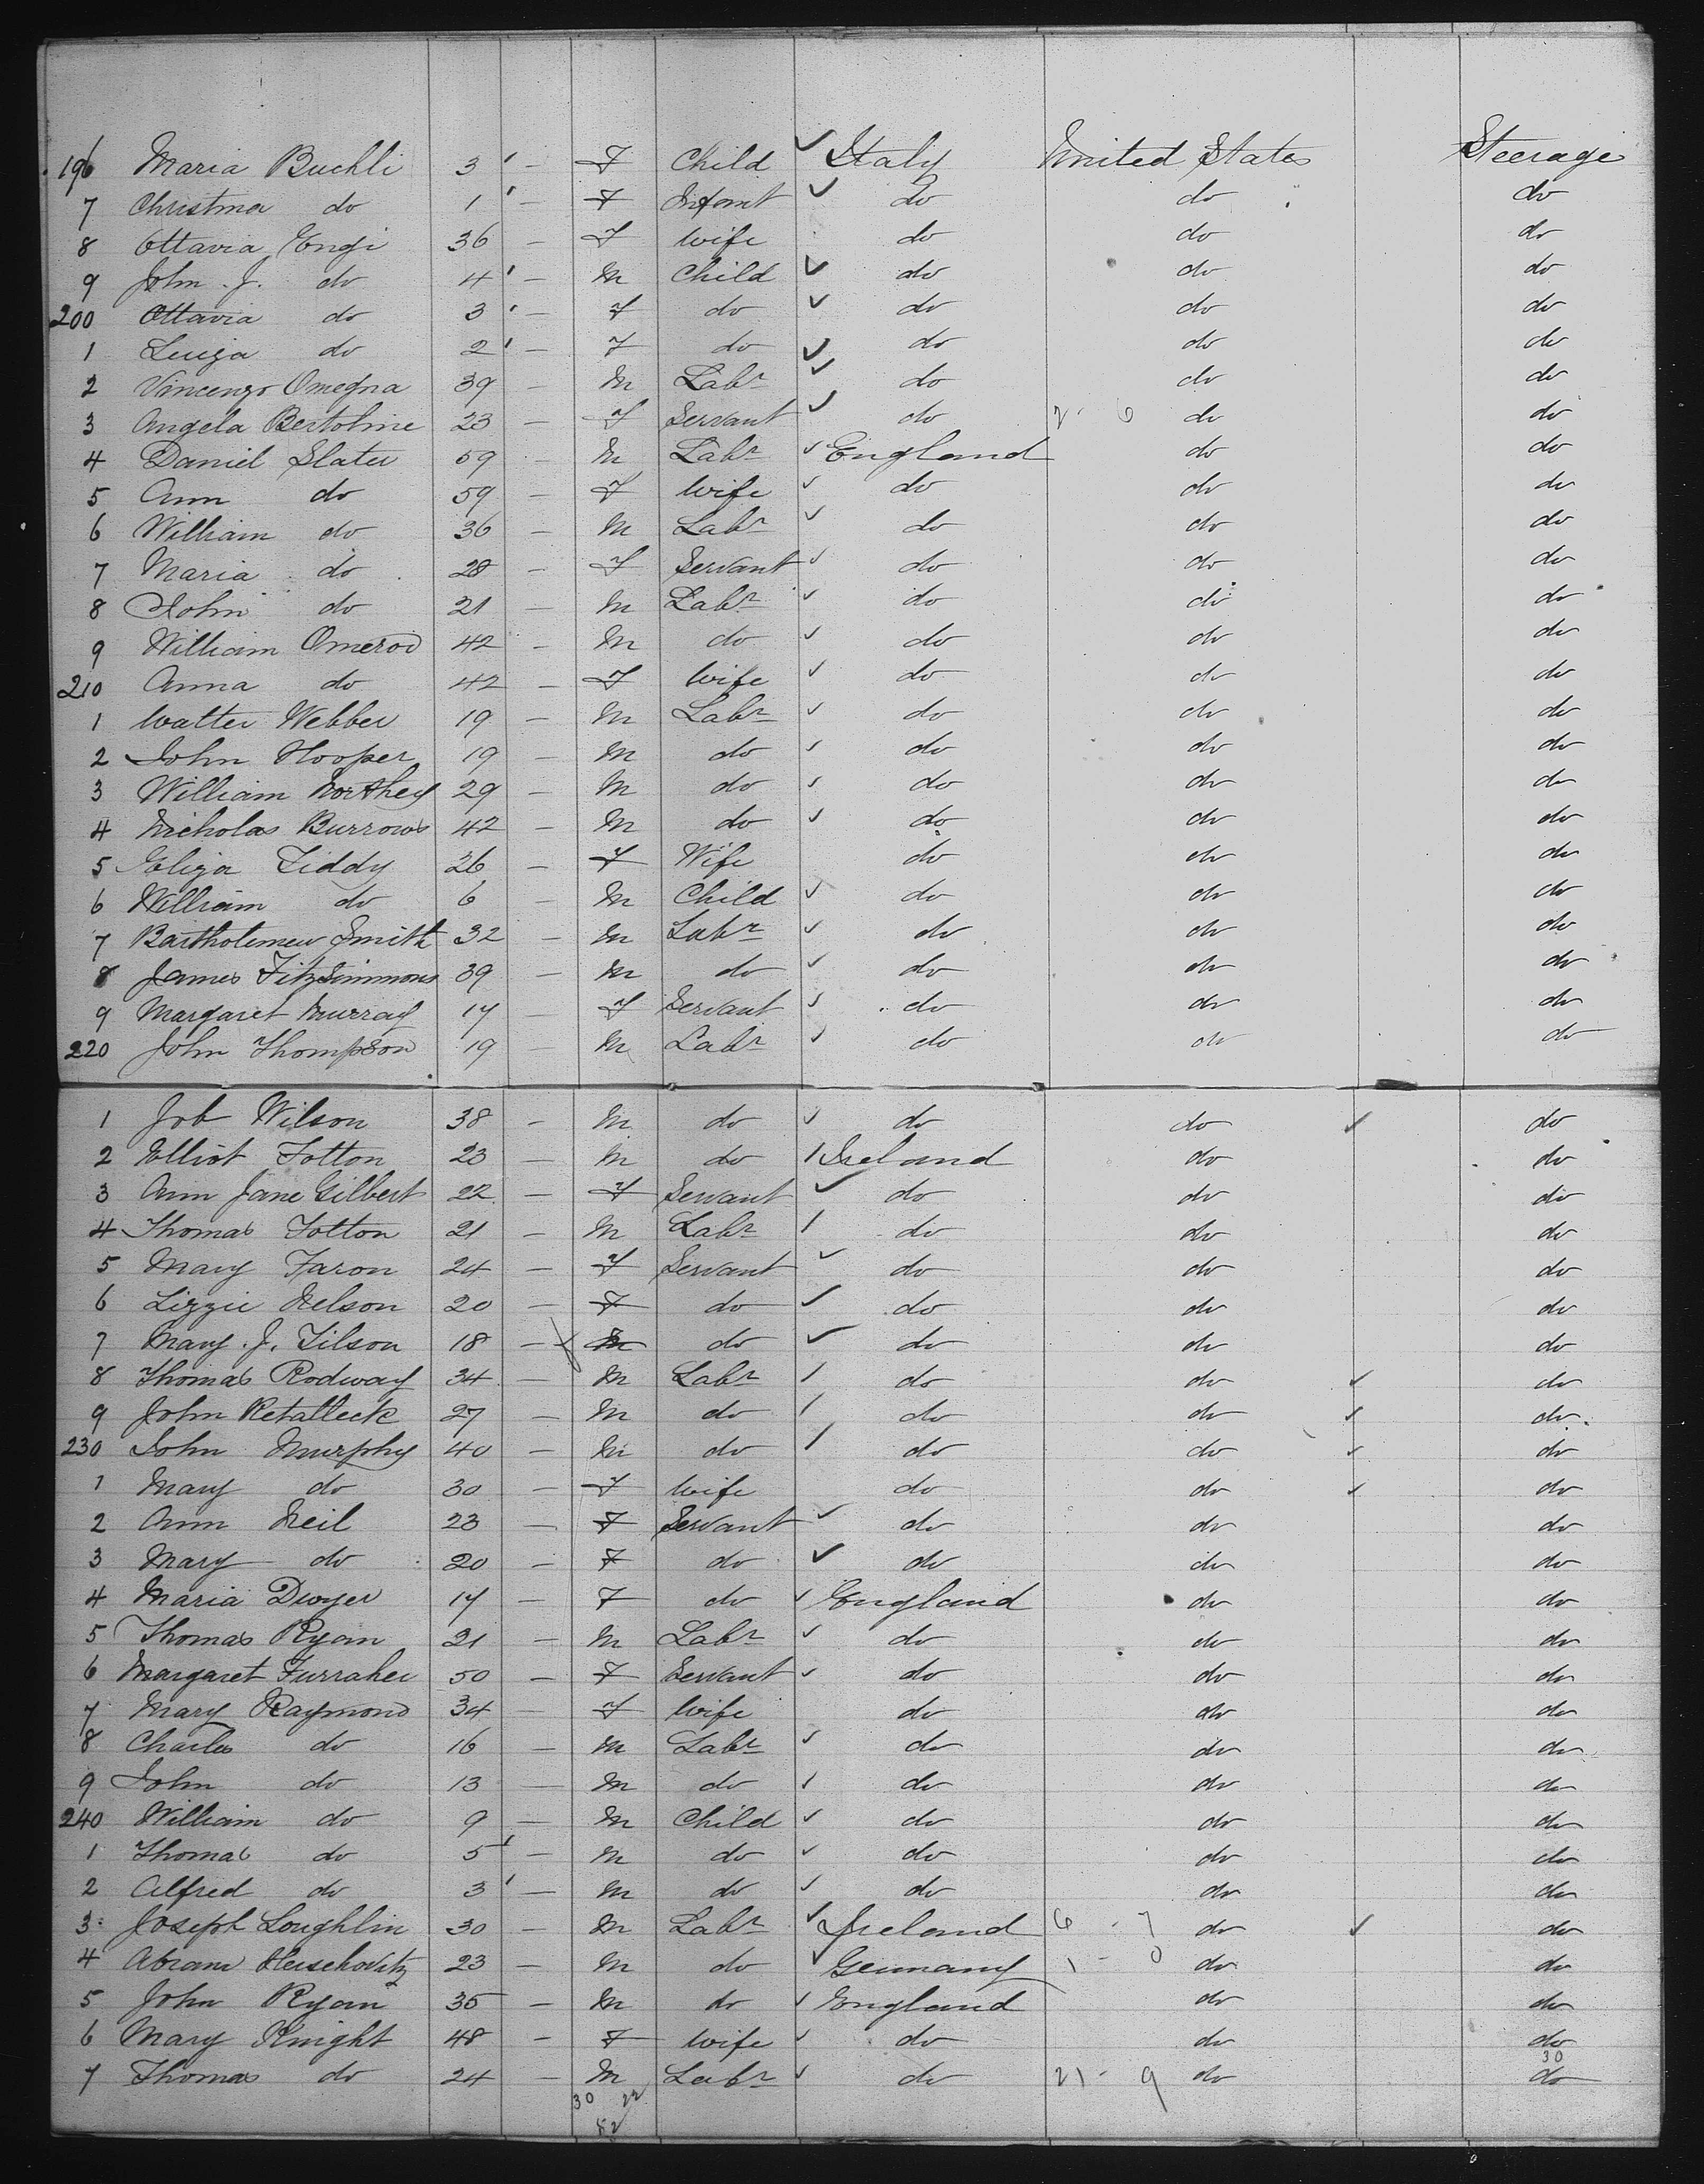 196 Maria Buchli 3 ' - F Child ✓ Italy United States Steerage
7 Christina do 1 ' - F Infant ✓ do do do
8 Ottavia Engi 36 - F Wife do do do
9 John . J. do 4 ' - M Child ✓ do do do
200 Ottavia do 3 ' - F do ✓ do do do
1 Luiga do 2 ' - F do ✓ do do do
2 Vincenzo Omegna 39 - M Labr ✓ do do do
3 Angela Bertoline 23 - F Servant ✓ do 2 - 6 do do
4 Daniel Slater 59 - M Labr ✓ England do do
5 Ann do 59 - F Wife ✓ do do do
6 William do 36 - M Labr ✓ do do do
7 Maria do 28 - F Servant ✓ do do do
8 John do 21 - M Labr ✓ do do do
9 William Omerod 42 - M do ✓ do do do
210 Anna do 42 - F Wife ✓ do do do
1 Walter Webber 19 - M Labr ✓ do do do
2 John Hooper 19 - M do ✓ do do do
3 William Northey 29 - M do ✓ do do do
4 Nicholas Burrows 42 - M do ✓ do do do
5 Eliza Tiddy 26 - F Wife do do do
6 William do 6 - M Child ✓ do do do
7 Bartholemew Smith 32 - M Labr ✓ do do do
8 James FitzSimmons 39 - M do ✓ do do do
9 Margaret Murray 17 - F Servant ✓ do do do
220 John Thompson 19 - M Labr ✓ do do do
1 Job Wilson 38 - M do ✓ do do ✓ do
2 Elliot Totton 23 - M do / Ireland do do
3 Ann Jane Gilbert 22 - F Servant ✓ do do do
4 Thomas Totton 21 - M Labr / do do do
5 Mary Faron 24 - F Servant ✓ do do do
6 Lizzie Nelson 20 - F do ✓ do do do
7 Mary . J. Tilson 18 - f M do ✓ do do do
8 Thomas Rodway 34 - M Labr / do do ✓ do
9 John Retalleck 27 - M do / do do ✓ do
230 John Murphy 40 - M do / do do ✓ do
1 Mary do 30 - F Wife do do ✓ do
2 Ann Neil 23 - F Servant ✓ do do do
3 Mary do 20 - F do ✓ do do do
4 Maria Dwyer 17 - F do ✓ England do do
5 Thomas Ryan 21 - M Labr ✓ do do do
6 Margaret Furraher 50 - F Servant ✓ do do do
7 Mary Raymond 34 - F Wife do do do
8 Charles do 16 - M Labr ✓ do do do
9 John do 13 - M do ✓ do do do
240 William do 9 - M Child ✓ do do do
1 Thomas do 5 ' - M do ✓ do do do
2 Alfred do 3 ' - M do ✓ do do do
3 Joseph Loughlin 30 - M Labr ✓ Ireland 6 - 7 do ✓ do
4 Abram Herschovitz 23 - M do ✓ Germany 1 - 0 do do
5 John Ryan 35 - M do ✓ England do do
6 Mary Knight 48 - F Wife ✓ do do do
7 Thomas do 24 - M Labr ✓ do 21 - 9 do 30 do
30 22
52